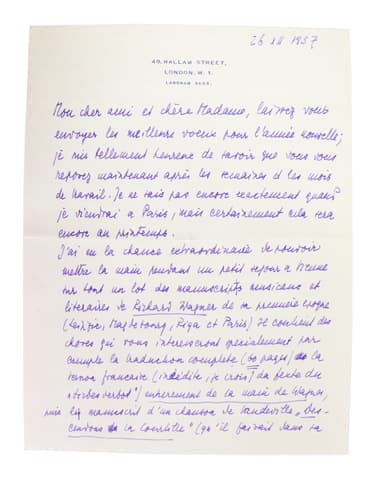 26 XII 1937
49, HALLAM STREET,
LONDON, W. 1.
LANGHAM
Mon cher ami et chère Madame, laissez vous
envoyer les meilleurs voeux pour l'année nouvelle;
je suis tellement heureux de savoir que vous vous
reposez maintenant après les semaines et les mois
de travail. Je ne sais pas encore exactement quand
je viendrai à Paris, mais certainement cela sera
encore au printemps.
J'ai eu la chance extraordinaire de pouvoir
mettre la main pendant un petit sejour à Vienne
sur tout un lot des manuscrits musicaux et
literaires de Richard Wagner de sa premiere epoque
(Leipzig, Magdebourg, Riga et Paris) Il contient des
choses qui vous interesseront specialement par
exemple la traduction complete (60 pages) de la
version française (inédite, je crois) du texte du
"Liebesverbot") entierement de la main de Wagner,
puis le manuscrit d'un chanson de Vaudeville „Des-
cendons la Courtille" (qu'il faisait dans sa